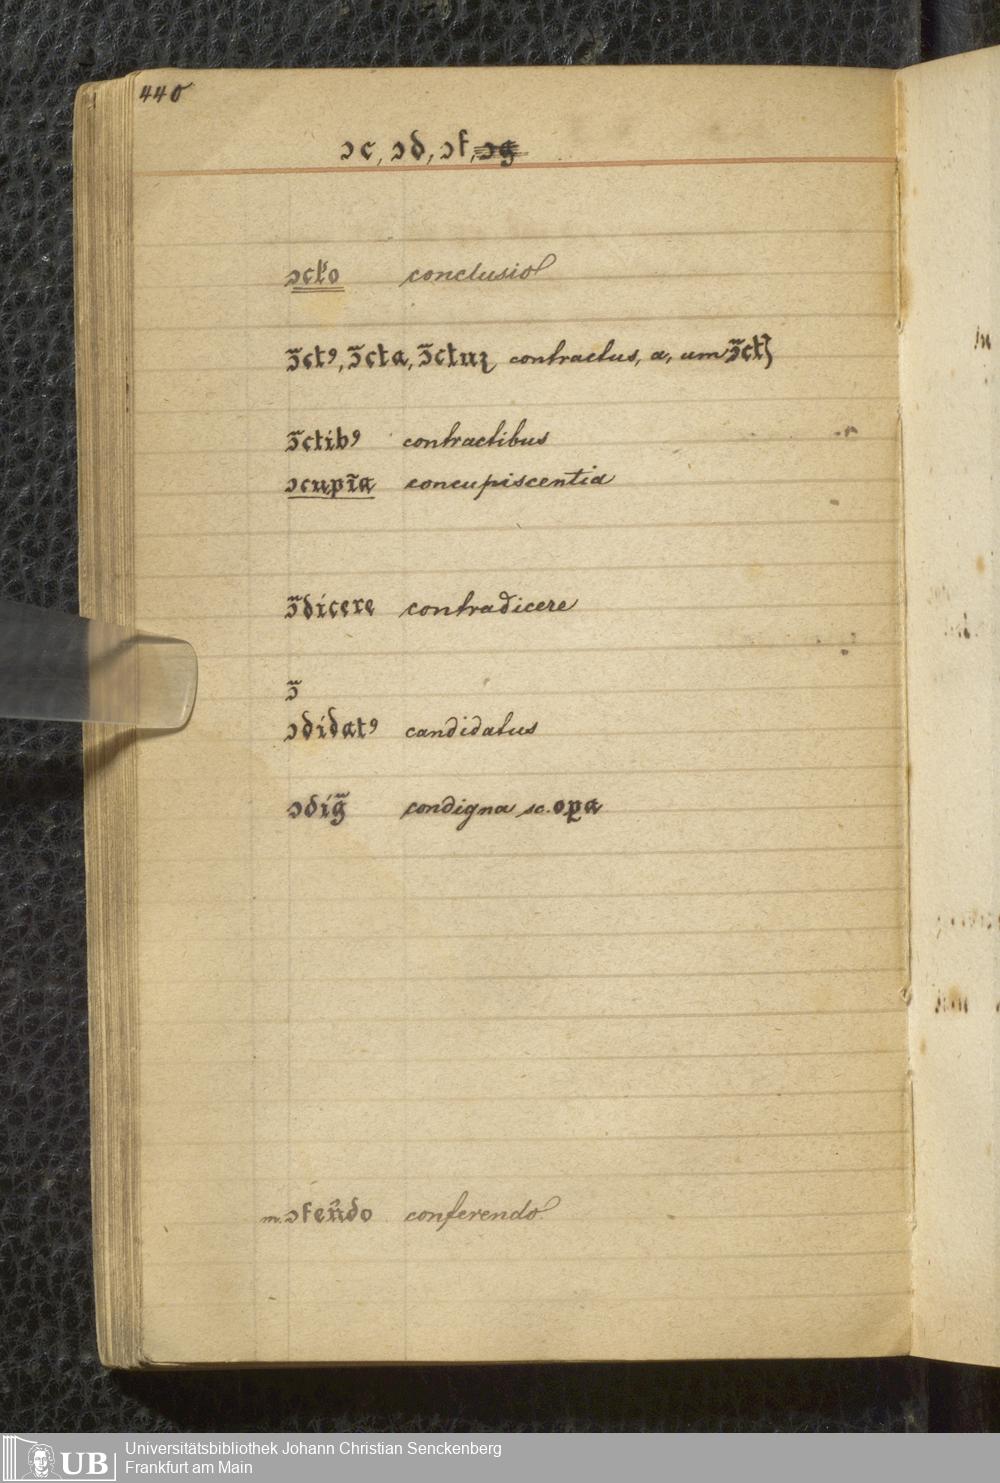 440
ↄc, ↄd, ↄf, ↄg
ↄclºo conclusio
ↄ̃ctꝰ, ↄ̃cta, ↄ̃ctuꝫ contractus, a, um ↄ̃ct}
ↄ̃ctibꝰ contractibus
ↄcupīa concupiscentia
ↄ̃dicere contradicere
ↄ̃
ↄdidatꝰ candidatus
ↄdig̃ condigna sc. oꝑa
m. ↄfeñdo conferendo.
Universitätsbibliothek Johann Christian Senckenberg
UB Frankfurt am Main